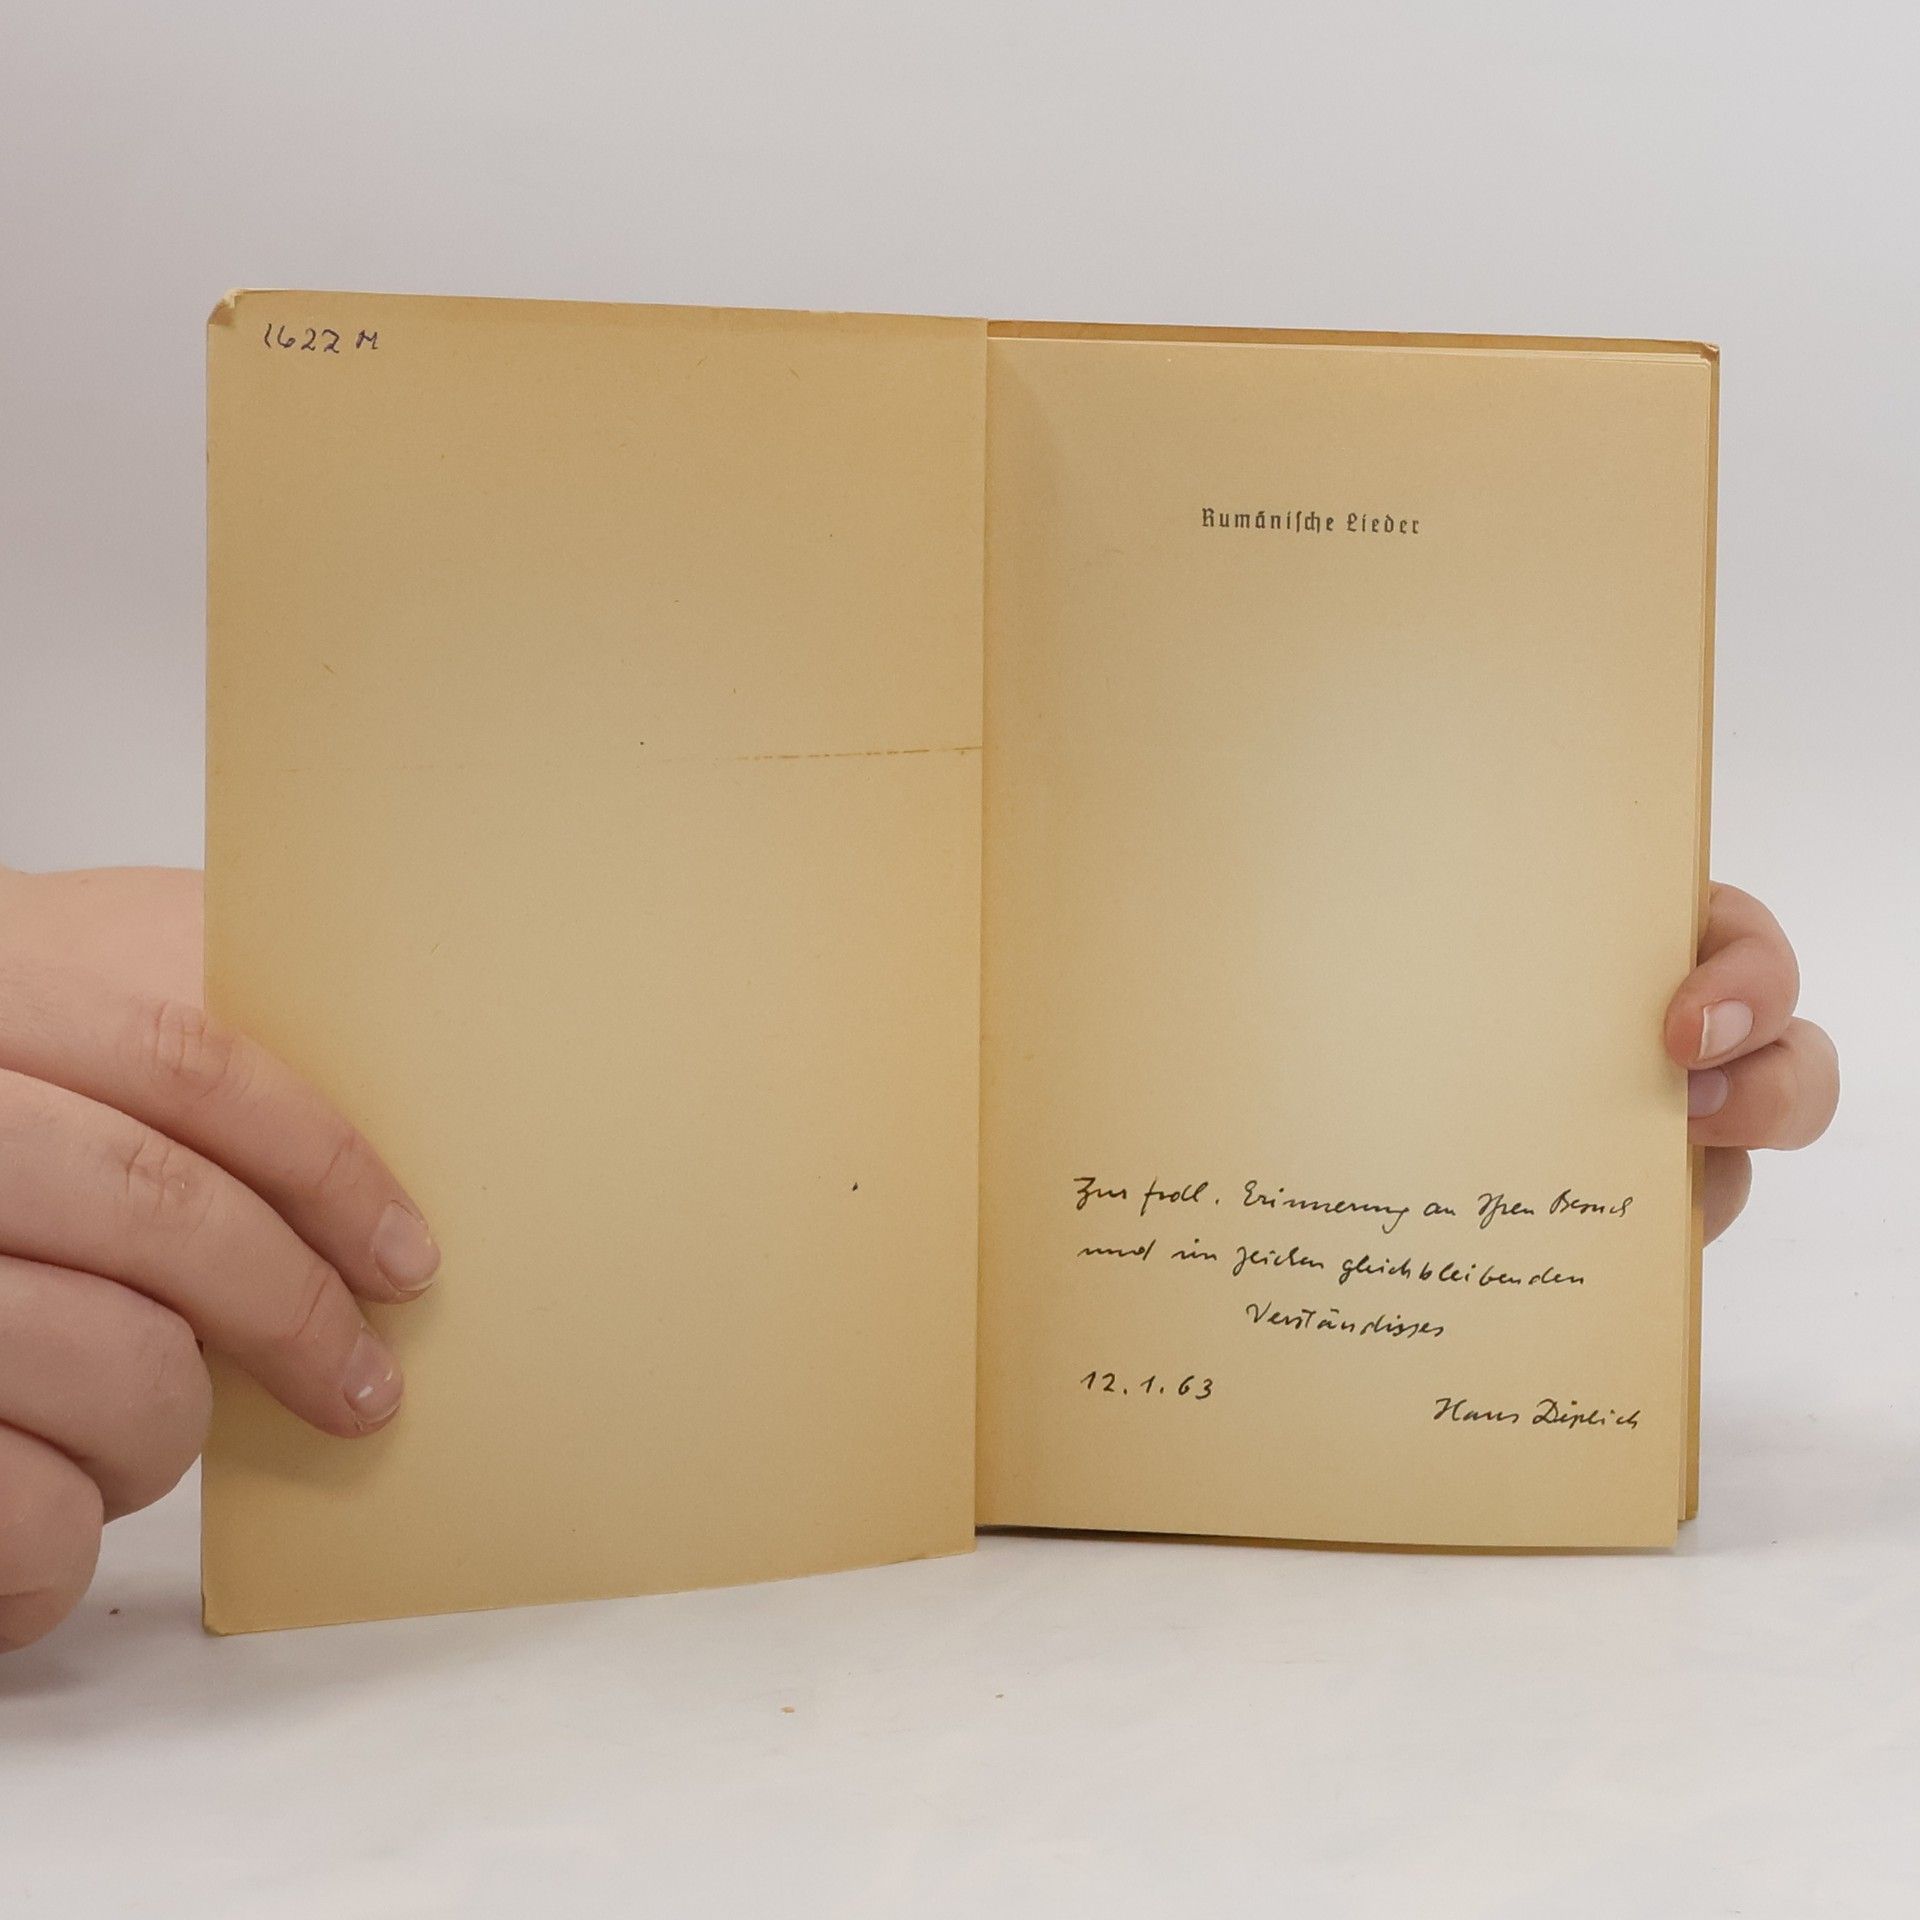 1622 M
Rumänische Lieder
Zur frdl. Erinnerung an Ihren Besuch
und im Zeichen gleichbleibenden
Verständisses
12.1.63
Hans Diplich